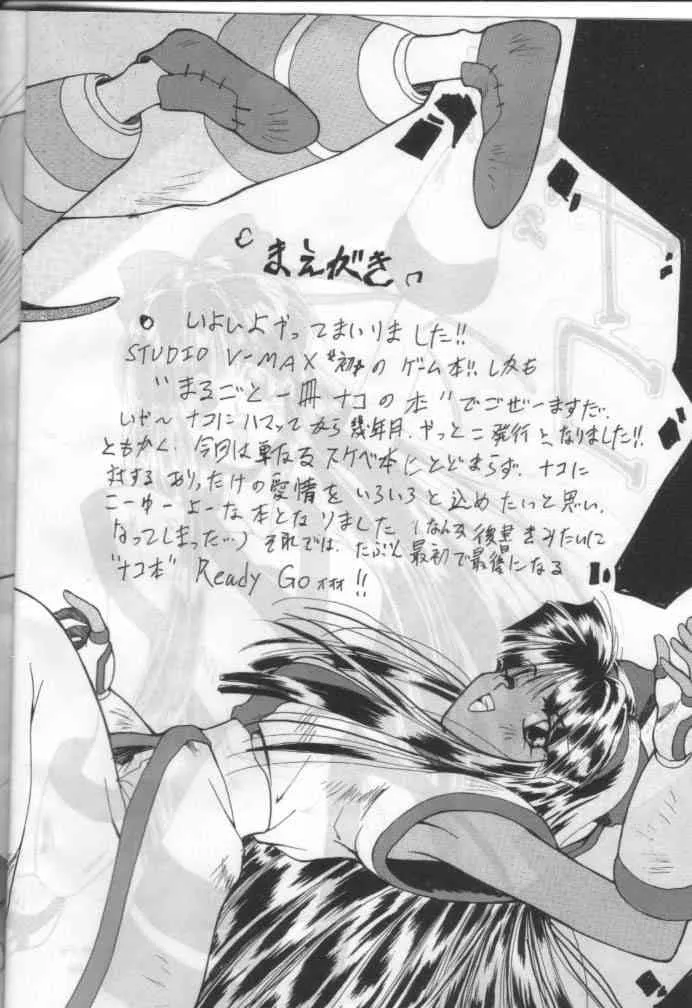 『まえがき』
○ いよいよやってまいりました!!
STUDIO V-MAX 初のゲーム本!! しかも
"まるごと一冊ナコの本"でごぜーますだ。
いや～ナコにハマッてから幾年月、やっとこ発行となりました!!
ともかく、今回は単なるスケベ本にとどまらず、ナコに
対するありったけの愛情をいろいろと込めたいっと思い、
こーゆーよーな本となりました (なんか後書きみたいに
なってしまった…) それでは、たぶん最初で最後になる
"ナコ本" Ready Go!!